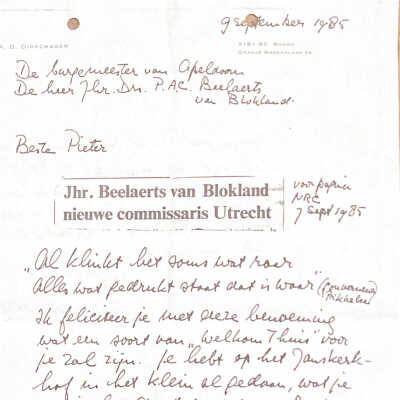 A. D. DIRKZWAGER
9 september 1985
3181 SC ROZEN
De burgemeester van Apeldoorn
De heer Jhr. Drs. P.A.C. Beelaerts
van Blokland.
Beste Pieter
Jhr. Beelaerts van Blokland
nieuwe commissaris Utrecht
voorpagina
NRC
7 Sept 1985
"Al klinkt het soms wat raar
Alles wat gedrukt staat dat is waar"
Ik feliciteer je met deze benoeming
wat een soort van "Welkom Thuis" voor
je zal zijn. Je hebt op het Janskerk-
hof in het klein al gedaan, wat je